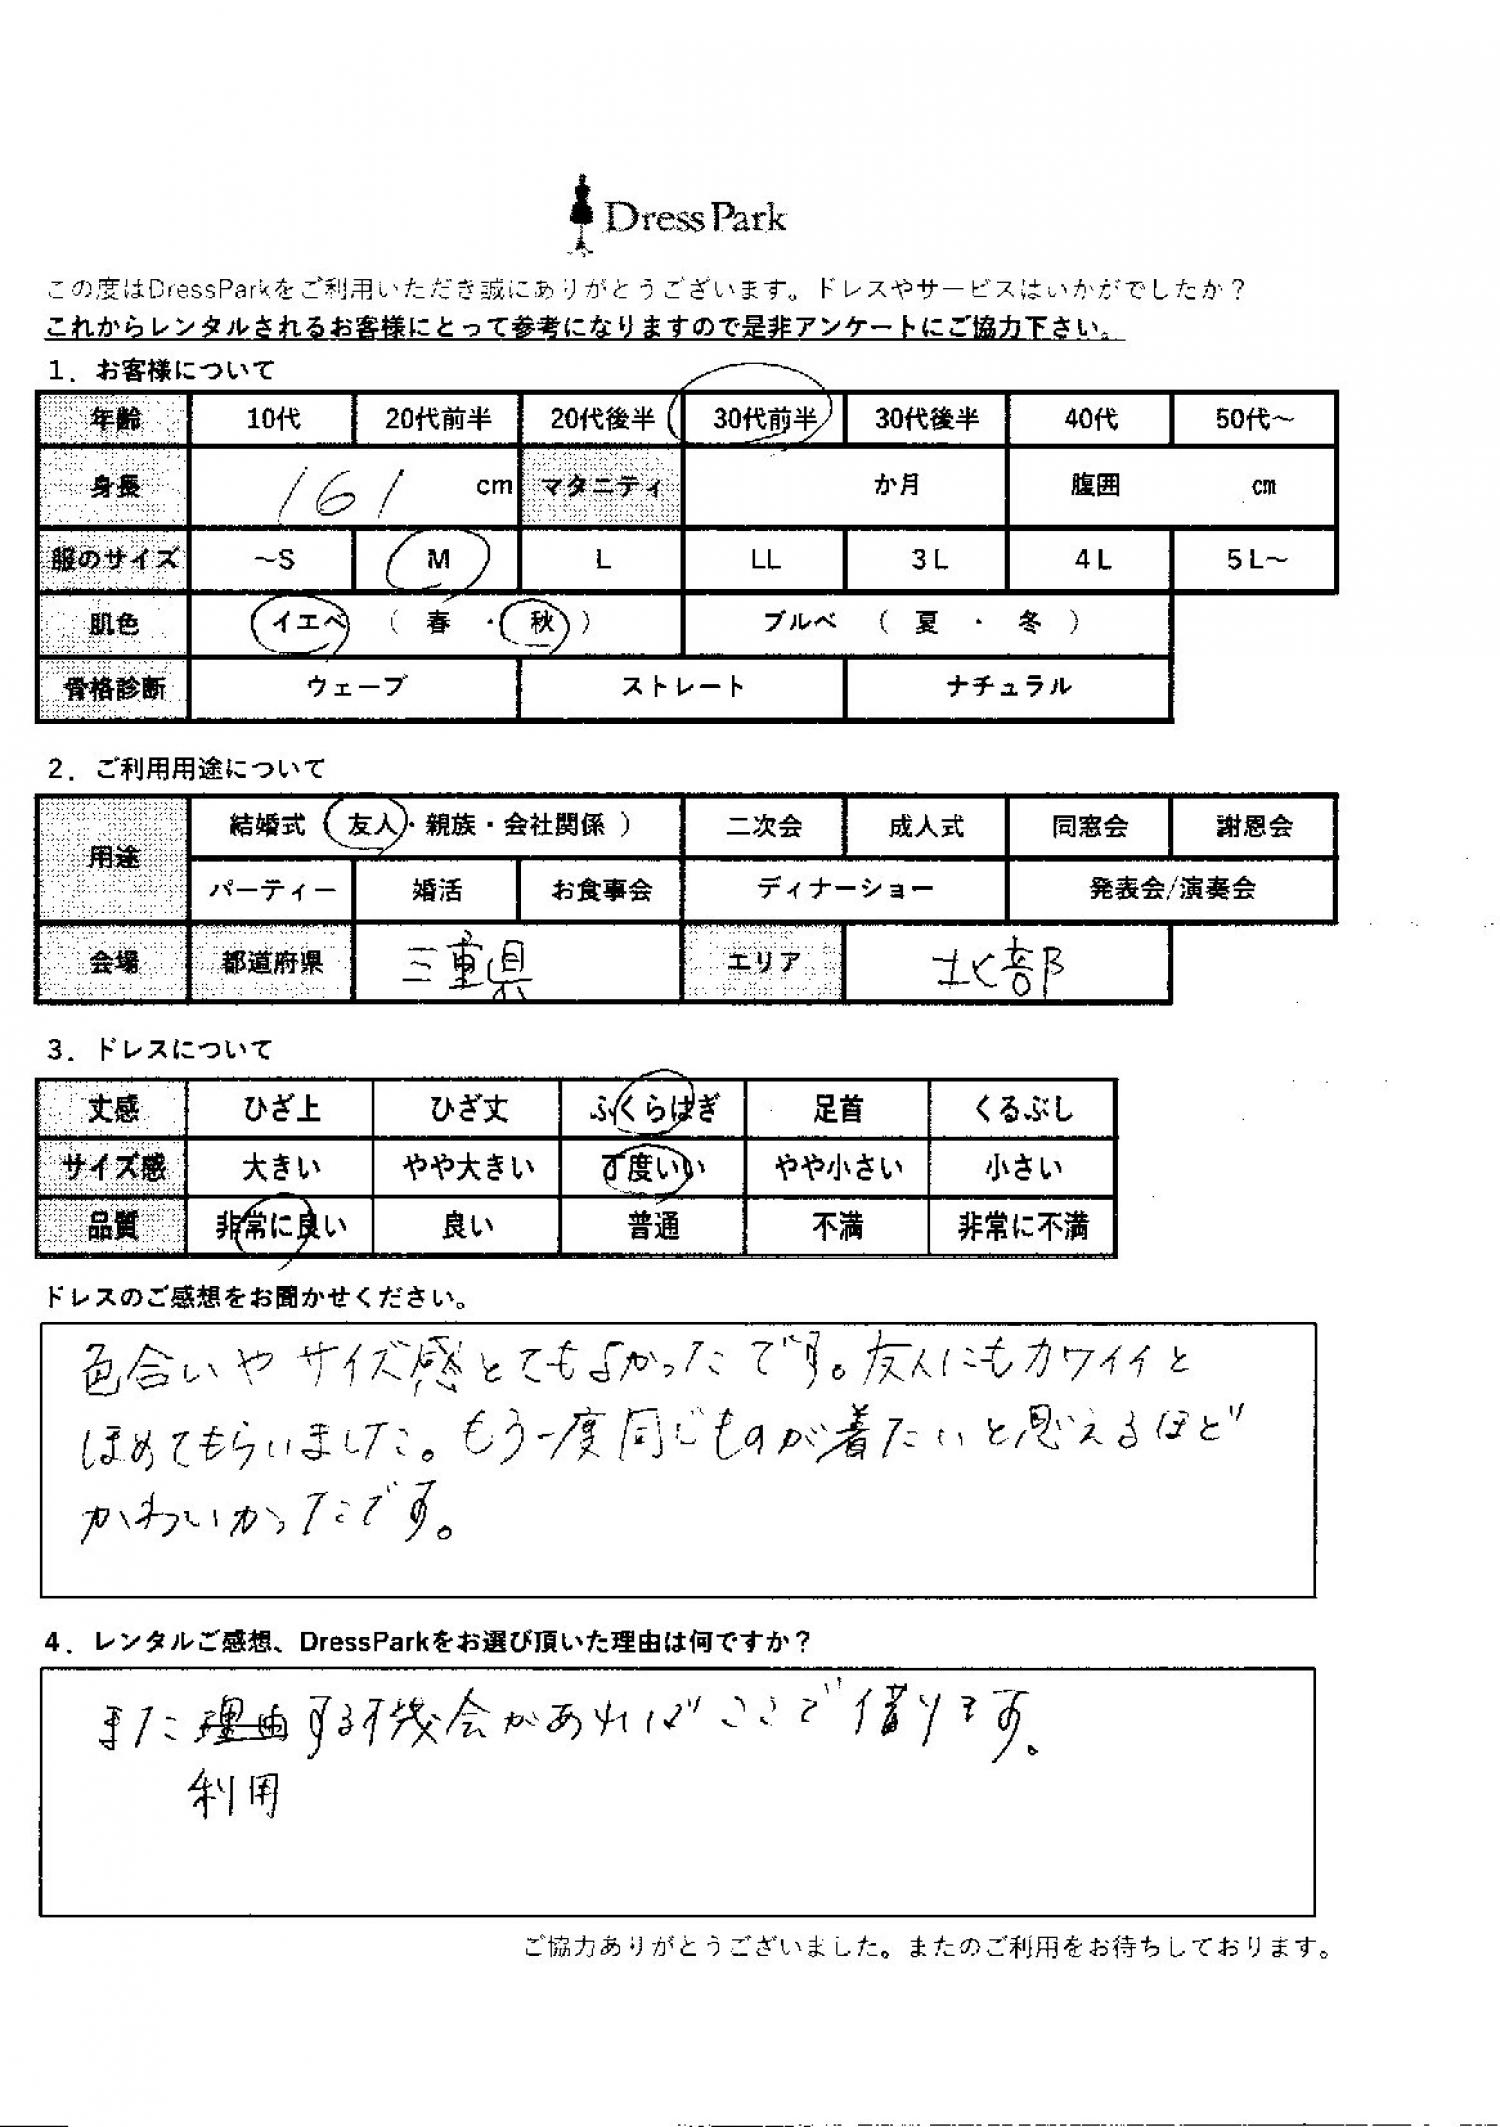 Dress Park
この度はDressParkをご利用いただき誠にありがとうございます。ドレスやサービスはいかがでしたか？
これからレンタルされるお客様にとって参考になりますので是非アンケートにご協力下さい。
1．お客様について
年齢 10代 20代前半 20代後半 30代前半 30代後半 40代 50代～
身長 161 cm マタニティ か月 腹囲 cm
服のサイズ ～S M L LL 3L 4L 5L～
肌色 イエベ （ 春 ・ 秋 ） ブルベ （ 夏 ・ 冬 ）
骨格診断 ウェーブ ストレート ナチュラル
2．ご利用用途について
用途 結婚式（ 友人・親族・会社関係 ） 二次会 成人式 同窓会 謝恩会
パーティー 婚活 お食事会 ディナーショー 発表会/演奏会
会場 都道府県 三重県 エリア 北部
3．ドレスについて
丈感 ひざ上 ひざ丈 ふくらはぎ 足首 くるぶし
サイズ感 大きい やや大きい 丁度いい やや小さい 小さい
品質 非常に良い 良い 普通 不満 非常に不満
ドレスのご感想をお聞かせください。
色合いやサイズ感とてもよかったです。友人にもカワイイと
ほめてもらいました。もう一度同じものが着たいと思えるほど
かわいかったです。
4．レンタルご感想、DressParkをお選び頂いた理由は何ですか？
また理由する機会があればここで借ります。
利用
ご協力ありがとうございました。またのご利用をお待ちしております。